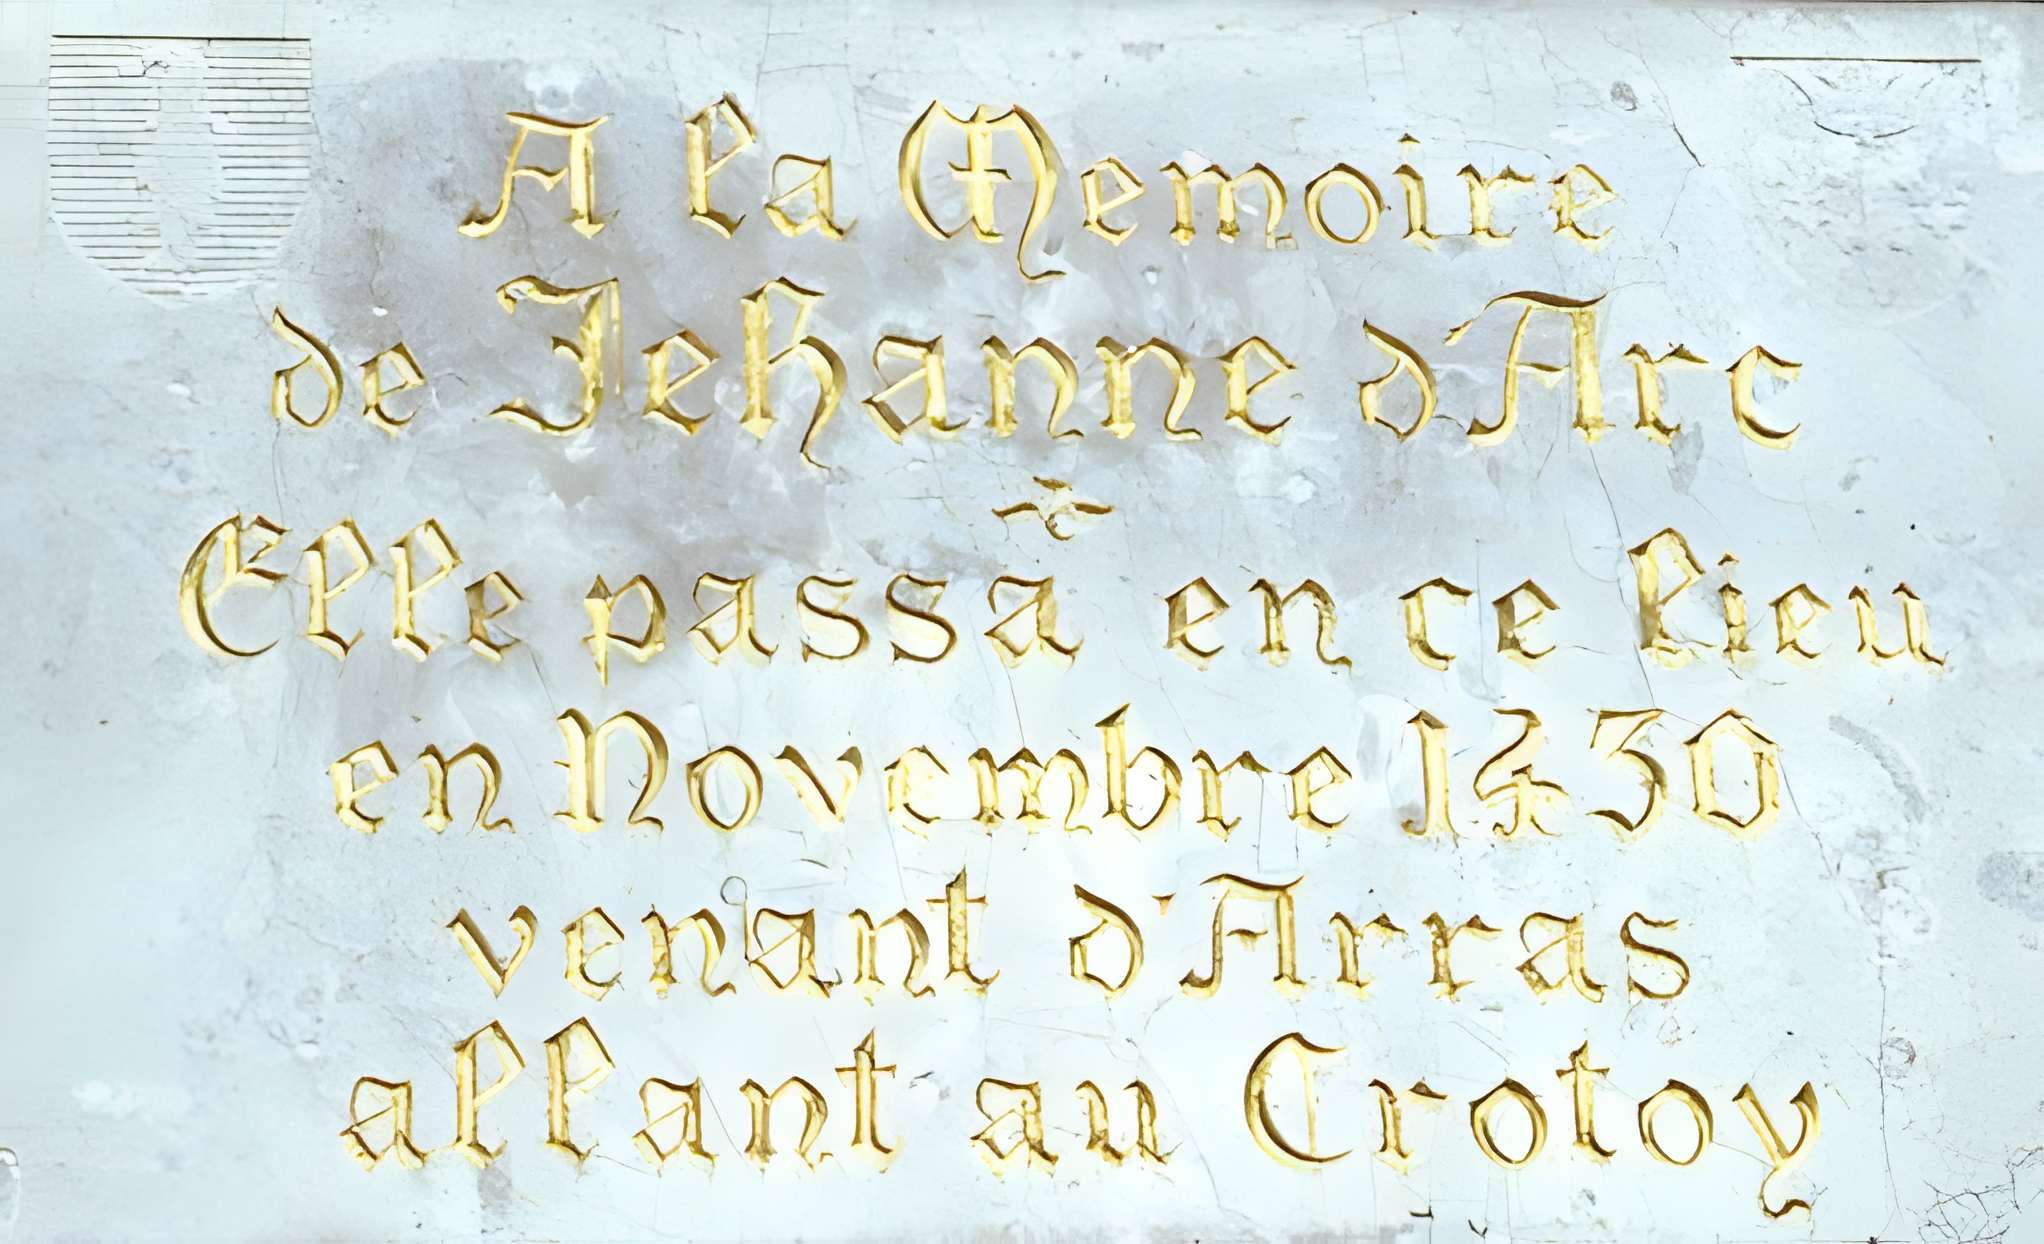 A la Memoire
de Jehanne d'Arc
Elle passa en ce lieu
en Novembre 1430
venant d'Arras
allant au Crotoy